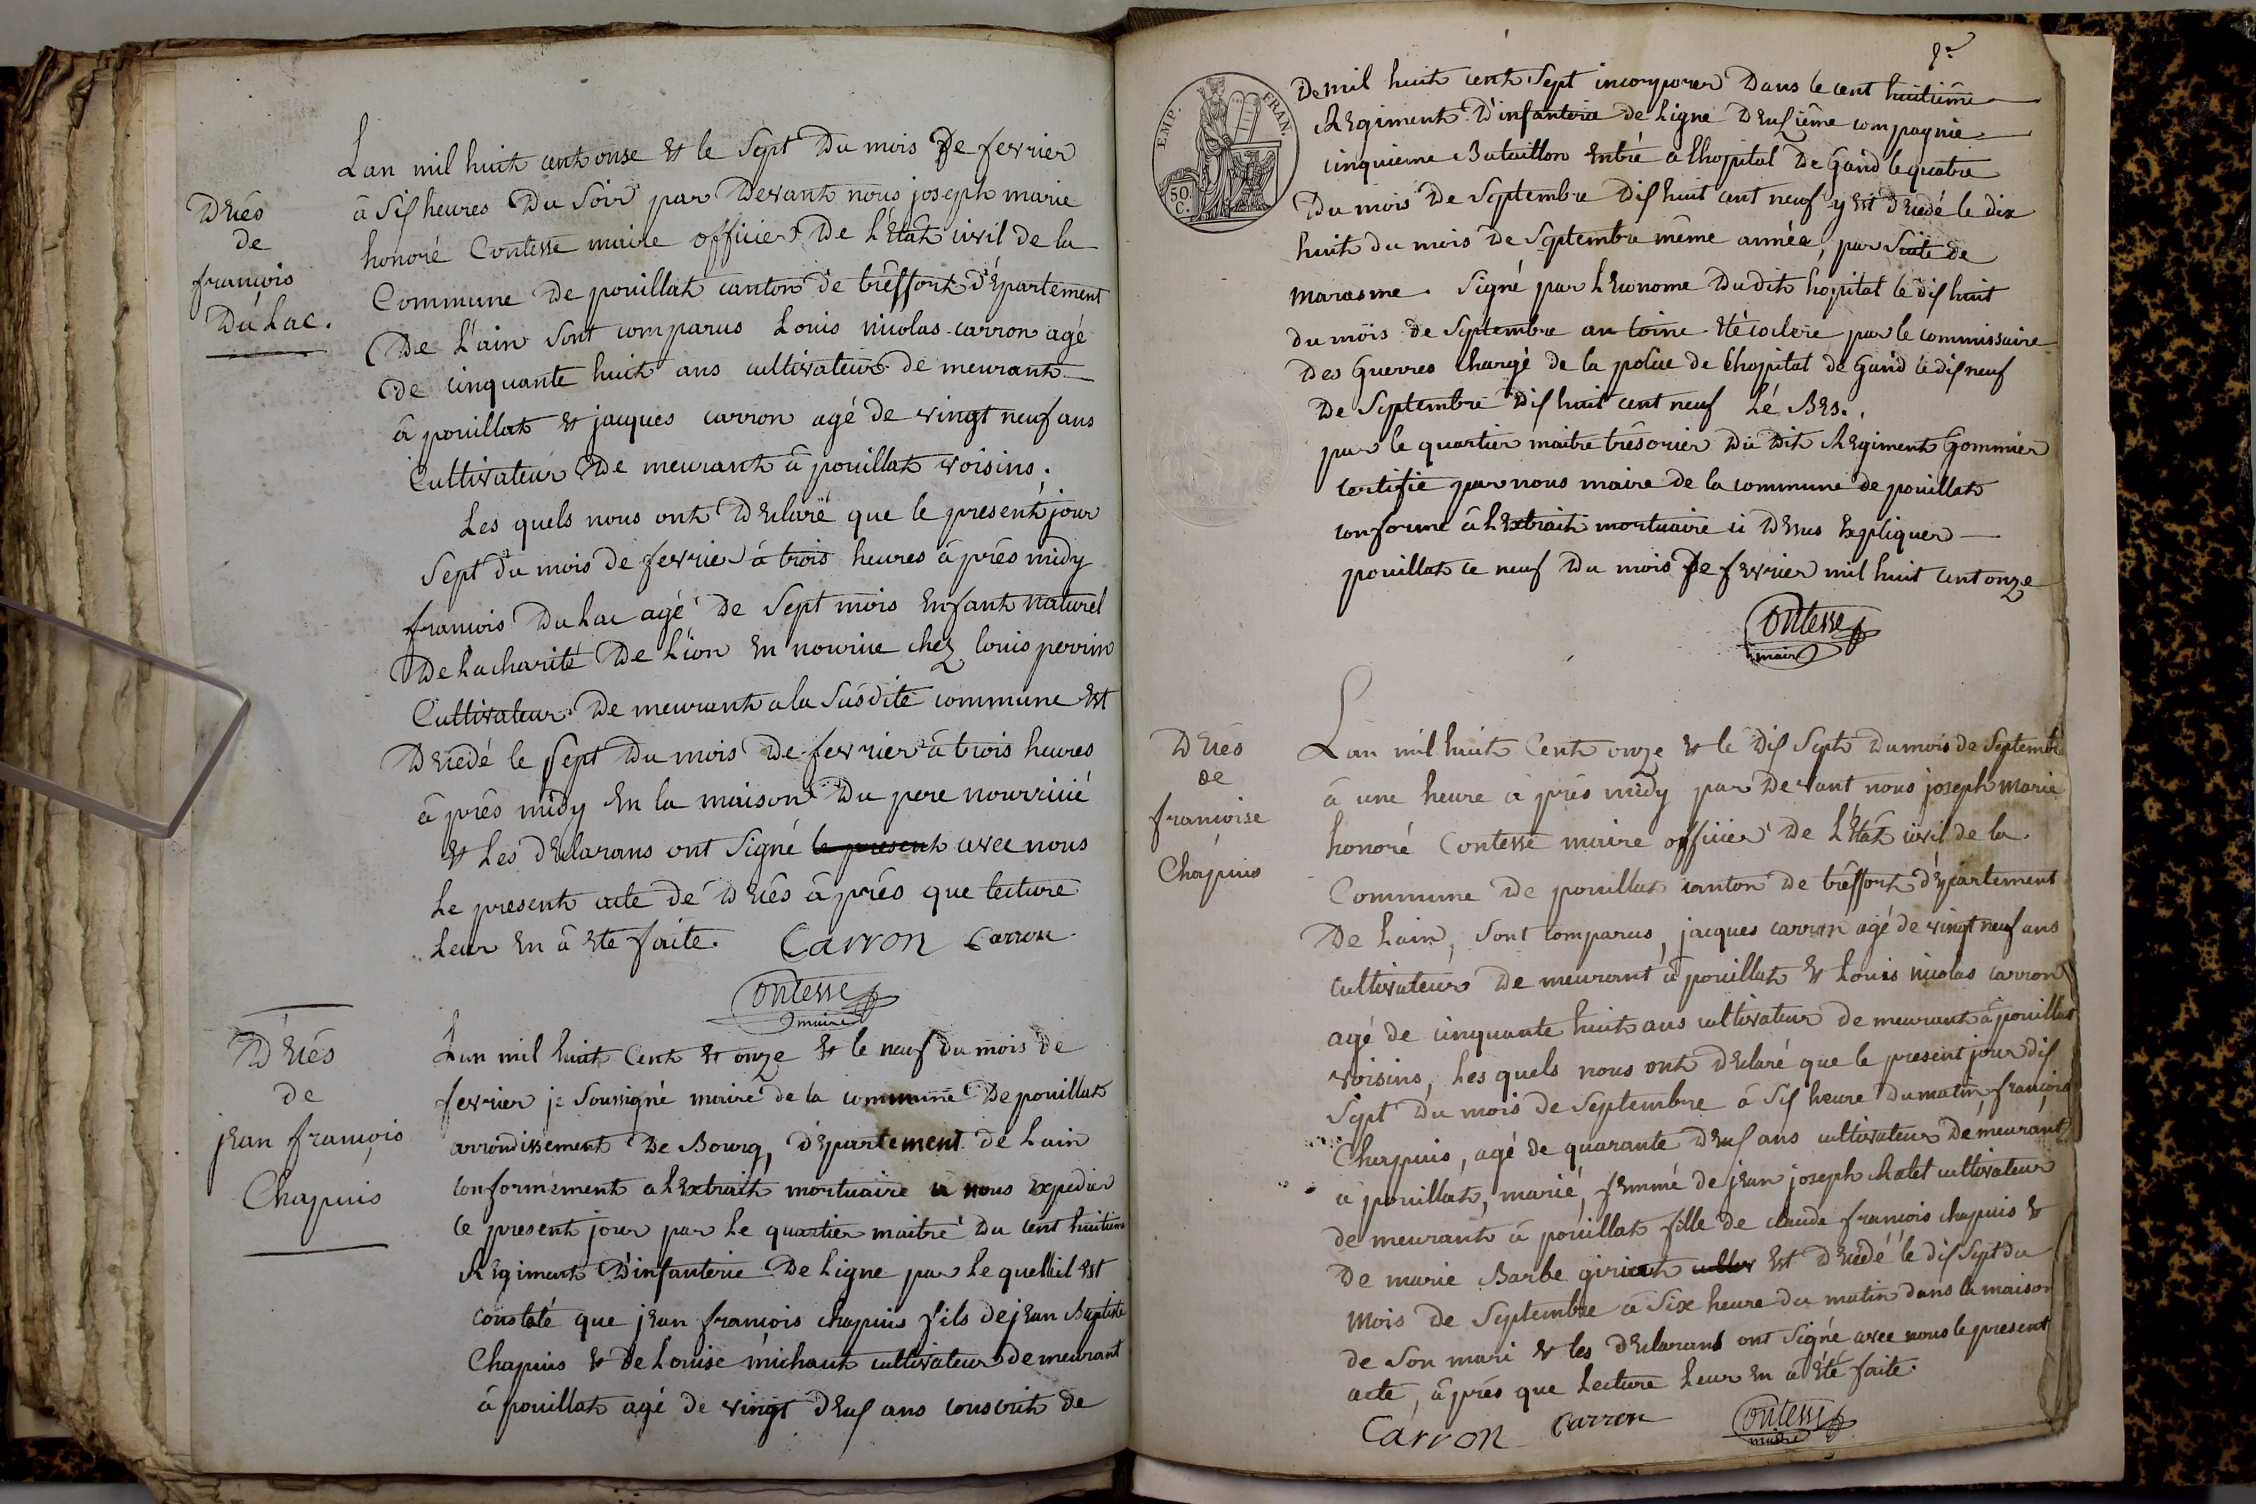 Déçés
de
françois
Du Lac.
Lan mil huit cent onse et le Sept Du mois De fevrier
à Sis heures Du Soir par Devant nous joseph marie
honoré Contesse maire officier De L'Etat civil de la
Commune De pouillat canton de trêffort D'épartement
De L'ain Sont comparus Louis nicolas carron agé
de cinquante huit ans cultivateur de meurant
à pouillat et jacques carron agé de vingt neuf ans
Cultivateur De meurant à pouillat voisins.
Les quels nous ont Déclaré que le present jour
Sept du mois de fevrier à trois heures à prés midy
françois Du Lac agé de Sept mois Enfant naturel
De La charité De Lion En nourice chez louis perrin
Cultivateur De meurant a la Susdite commune Est
Décedé le Sept Du mois De fevrier à trois heures
à prés midy En la maison Du pere nourricié
et Les déclarans ont Signé le present avec nous
Le present acte de Décés à prés que lecture
Leur En à Eté faite. Carron Carron
Contesse
maire
Décés
de
jean françois
Chapuis
Lan mil huit Cent et onze et le neuf du mois de
fevrier je Soussigné maire de la commune De pouillat
arrondissement De Bourg, Département de Lain
conformément a lExtrait mortuaire a nous Expedier
ce present jour par Le quartier maitre Du cent huitieme
Regiment D'infanterie De Ligne par Le quel il Est
constaté que jean françois chapuis fils de jean Baptiste
Chapuis et De Louise michaut cultivateur demeurant
à pouillat agé de vingt deus ans conscrit de
De mil huit cent Sept incorporer Dans le cent huitième
Regiment D'infanterie de Ligne Deusième compagnie
cinquieme Bataillon Entré à Lhopital De Gand le quatre
Du mois De Septembre Dis huit cent neuf y Est décedé le dix
huit du mois De Septembre même année, par Suite de
marasme. Signé par LEconome Du dit hopital le dis huit
du mois de Septembre par le commissaire
Des Guerres Chargé de la police de Lhopital de Gand le dis neuf
De Septembre Dis huit cent neuf
par le quartier maitre trésorier Du Dit Regiment Gommier
Certifie par nous maire de la commune de pouillat
conforme à LExtrait mortuaire ci Desus Expliquer
pouillat ce neuf Du mois De fevrier mil huit cent onze
EMP. FRAN.
50
C.
Contesse
maire
Décés
de
françoise
Chapuis
Lan mil huit Cent onze et le Dis Sept Du mois de Septembre
à une heure à prés midy par Devant nous joseph marie
honoré Contesse maire officier De L'Etat civil de la
Commune De pouillat canton De trêffort département
De Lain, Sont comparus, jacques carron agé de vingt neuf ans
cultivateur De meurant à pouillat et Louis nicolas carron
agé de cinquante huit ans cultivateur de meurant à pouillat
voisins, Les quels nous ont déclaré que le present jour dis
Sept Du mois de Septembre à Sis heure Du matin françoise
Chapuis, agé de quarante deus ans cultivateur Demeurant
à pouillat, marié, femme de jean joseph chalet cultivateur
de meurant à pouillat fille de claude françois chapuis et
De marie Barbe Est Décedé le dis Sept du
mois de Septembre à Six heure du matin dans la maison
de Son mari et les déclarans ont Signé avec nous le present
acte, à prés que Lecture Leur En à Eté faite.
Carron Carron Contesse
maire